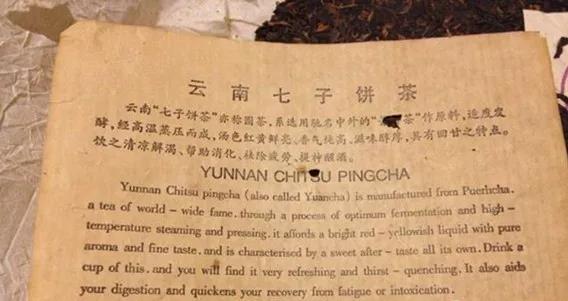 云南七子饼茶
云南“七子饼茶”亦称圆茶，系选用驰名中外的“茶”作原料，适度发
酵，经高温蒸压而成，汤色红黄鲜亮、香气纯高、滋味醇厚，具有回甘之特点。
饮之清凉解渴、帮助消化、祛除疲劳、提神醒酒。
YUNNAN CHITSU PINGCHA
Yunnan Chitsu pingcha (also called Yuancha) is manufactured from Puerhcha.
a tea of world – wide fame. through a process of optimum fermentation and high –
temperature steaming and pressing. it affords a bright red – yrllowish liquid with pure
aroma and fine taste. and is characterised by a sweet after – taste all its own. Drink a
cup of this. and you will find it very refreshing and thirst – quenching. It also aids
your digestion and quickens your recovery from fatigue or intoxication.